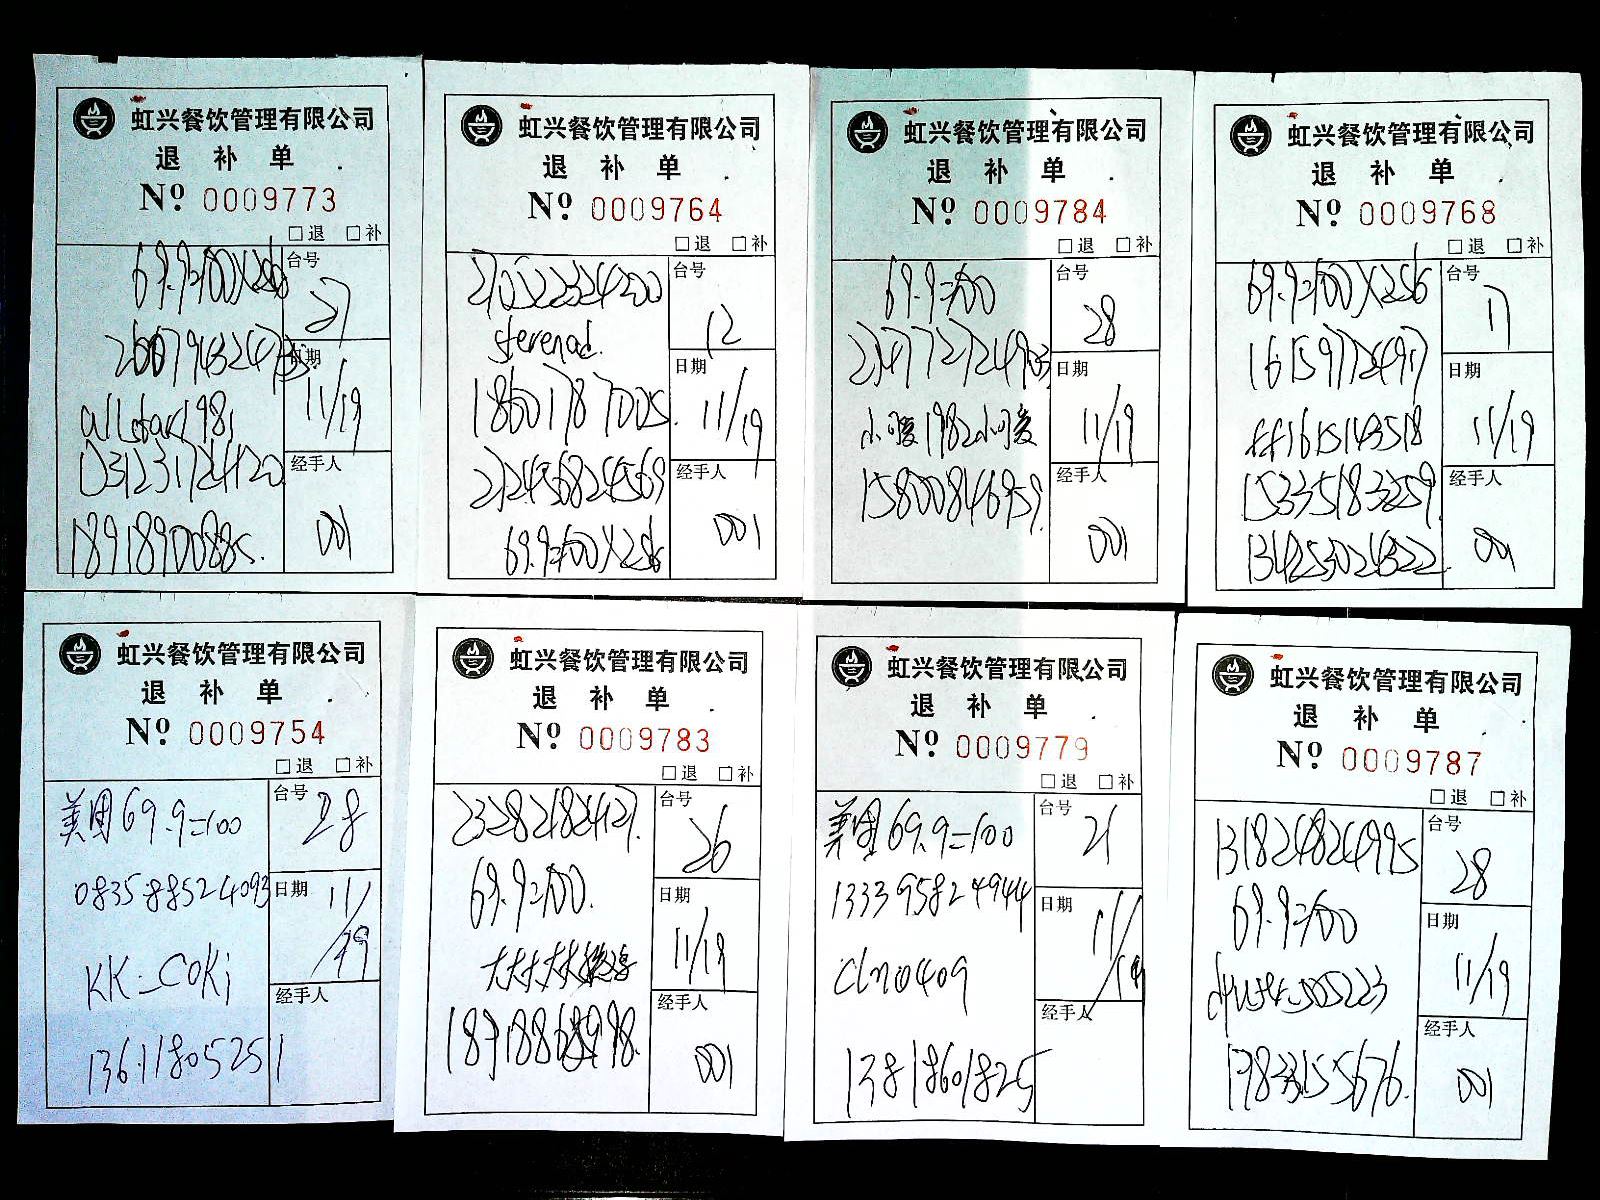 虹兴餐饮管理有限公司
退 补 单
Nº 0009773
□退 □补
69.9=100×2
台号
27
日期
11/19
allstar1981
031231724120
18918900885.
经手人
001
虹兴餐饮管理有限公司
退 补 单
Nº 0009764
□退 □补
台号
12
sferenad.
日期
11/19
18601787005.
212456824569
经手人
001
69.9=100×2
虹兴餐饮管理有限公司
退 补 单
Nº 0009784
□退 □补
69.9=100
台号
28
日期
11/19
小可爱1982小可爱
15800846959.
经手人
001
虹兴餐饮管理有限公司
退 补 单
Nº 0009768
□退 □补
69.9=100×256
台号
17
161597724917
日期
11/19
ff1615143518
15335183259.
经手人
001
134253024322
虹兴餐饮管理有限公司
退 补 单
Nº 0009754
□退 □补
美团69.9=100
台号
28
083588524093
日期
11/19
KK_COKi
经手人
13611805251
虹兴餐饮管理有限公司
退 补 单
Nº 0009783
□退 □补
232821824127.
台号
26
69.9=100.
日期
11/19
经手人
001
虹兴餐饮管理有限公司
退 补 单
Nº 0009779
□退 □补
美团69.9=100
台号
21
133395824944
日期
11/19
cln0409
经手人
13818601825
虹兴餐饮管理有限公司
退 补 单
Nº 0009787
□退 □补
131824824995
台号
28
69.9=100
日期
11/19
经手人
001